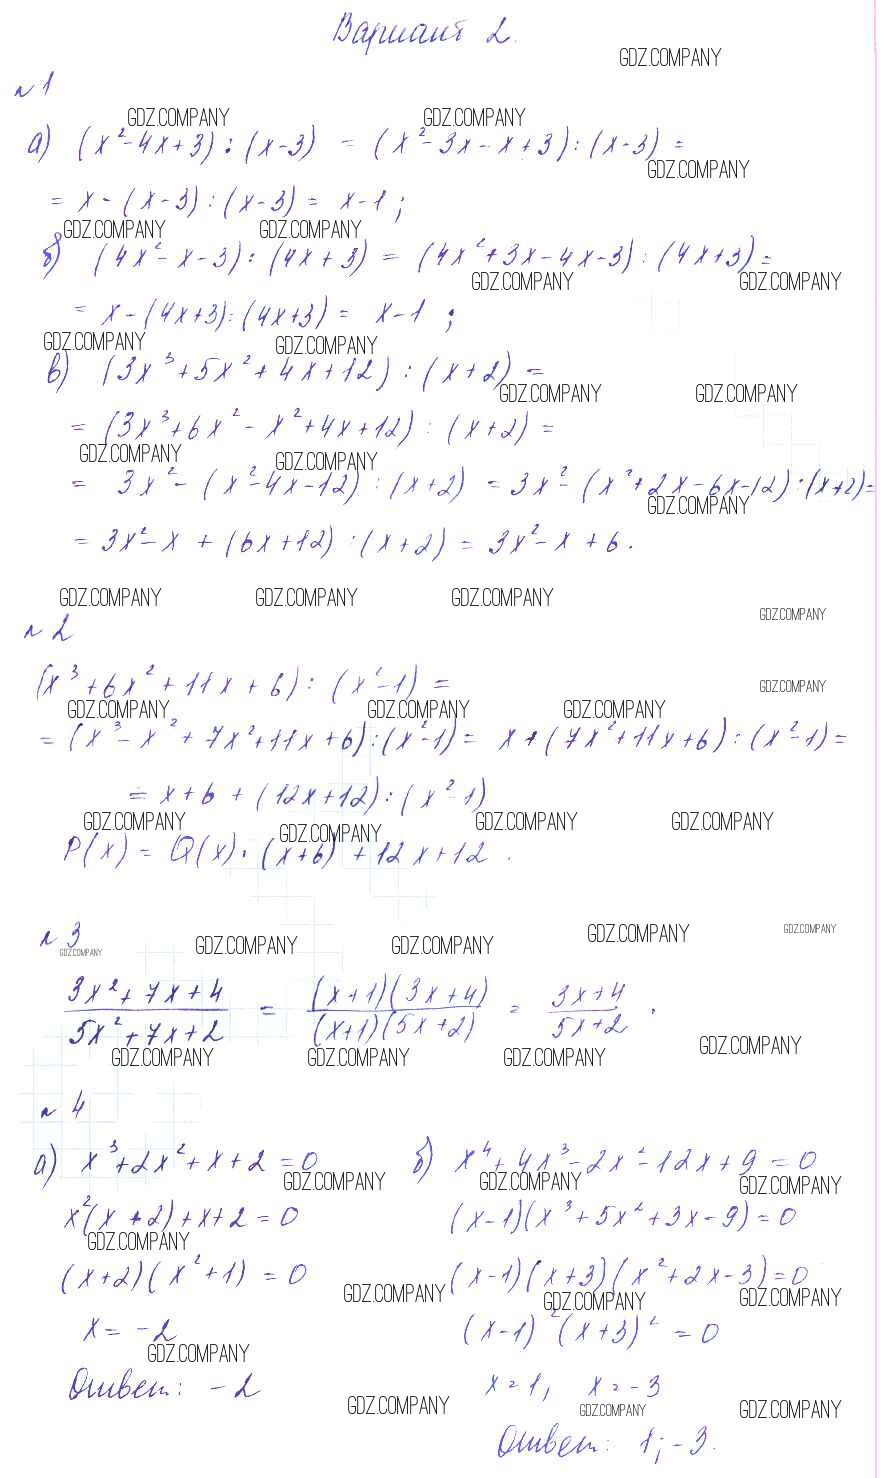 Вариант 2.
GDZ.COMPANY
№1
GDZ.COMPANY GDZ.COMPANY
а) (x²-4x+3) : (x-3) = (x²-3x-x+3) : (x-3) =
GDZ.COMPANY
= x-(x-3) : (x-3) = x-1;
GDZ.COMPANY GDZ.COMPANY
б) (4x²-x-3) : (4x+3) = (4x²+3x-4x-3) : (4x+3) =
GDZ.COMPANY GDZ.COMPANY
= x-(4x+3) : (4x+3) = x-1;
GDZ.COMPANY GDZ.COMPANY
в) (3x³+5x²+4x+12) : (x+2) =
GDZ.COMPANY GDZ.COMPANY
= (3x³+6x²-x²+4x+12) : (x+2) =
GDZ.COMPANY GDZ.COMPANY
= 3x²-(x²-4x-12) : (x+2) = 3x²-(x²+2x-6x-12) : (x+2) =
GDZ.COMPANY
= 3x²-x+(6x+12) : (x+2) = 3x²-x+6.
GDZ.COMPANY GDZ.COMPANY GDZ.COMPANY GDZ.COMPANY
№2
(x³+6x²+11x+6) : (x²-1) =
GDZ.COMPANY
GDZ.COMPANY GDZ.COMPANY GDZ.COMPANY
= (x³-x²+7x²+11x+6) : (x²-1) = x+(7x²+11x+6) : (x²-1) =
= x+6+(12x+12) : (x²-1)
GDZ.COMPANY GDZ.COMPANY GDZ.COMPANY GDZ.COMPANY
P(x) = Q(x)·(x+6)+12x+12.
№3
GDZ.COMPANY GDZ.COMPANY GDZ.COMPANY GDZ.COMPANY GDZ.COMPANY
3x²+7x+4 / 5x²+7x+2 = (x+1)(3x+4) / (x+1)(5x+2) = 3x+4 / 5x+2.
GDZ.COMPANY GDZ.COMPANY GDZ.COMPANY GDZ.COMPANY
№4
а) x³+2x²+x+2=0 б) x⁴+4x³-2x²-12x+9=0
GDZ.COMPANY GDZ.COMPANY GDZ.COMPANY
x²(x+2)+x+2=0 (x-1)(x³+5x²+3x-9)=0
GDZ.COMPANY
(x+2)(x²+1)=0 (x-1)(x+3)(x²+2x-3)=0
GDZ.COMPANY GDZ.COMPANY GDZ.COMPANY
x=-2 (x-1)²(x+3)²=0
GDZ.COMPANY
Ответ: -2 x=1, x=-3
GDZ.COMPANY GDZ.COMPANY GDZ.COMPANY
Ответ: 1; -3.